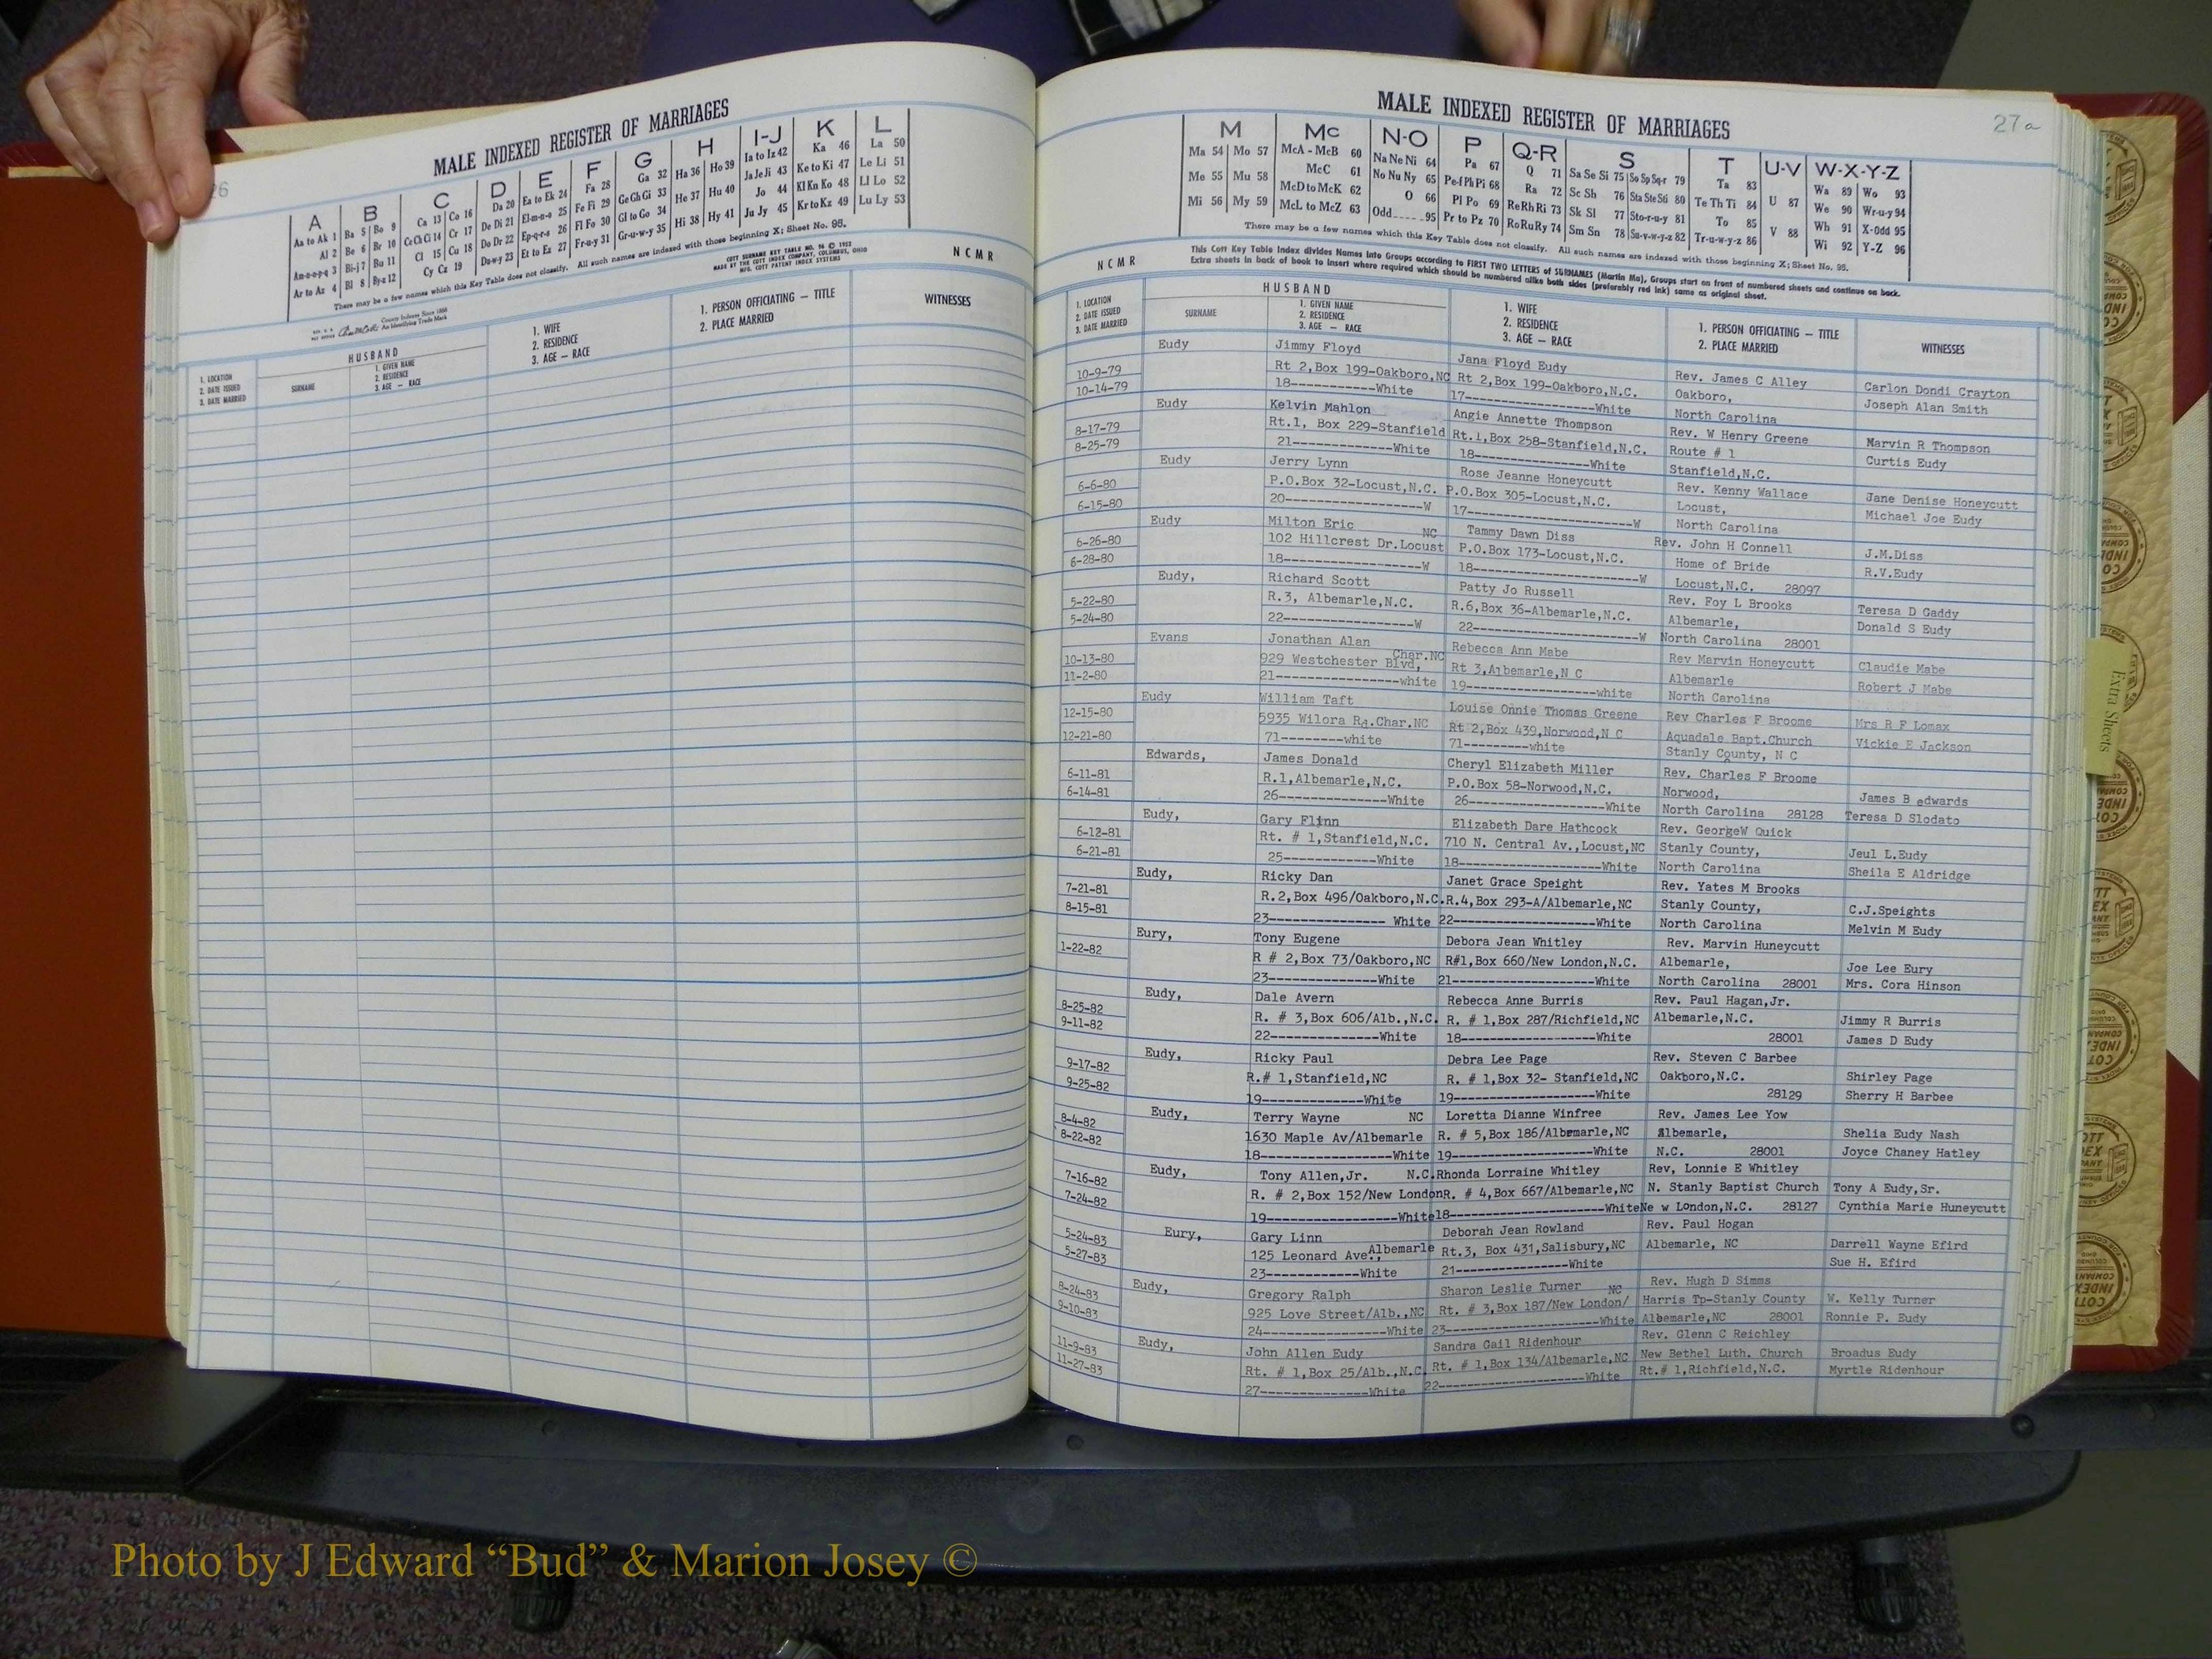 26
MALE INDEXED REGISTER OF MARRIAGES
A B C D E F G H I-J K L
Aa to Ak 1 Ba 5 Bo 9 Ca 13 Co 16 Da 20 Ea to Ek 24 Fa 28 Ga 32 Ha 36 Ho 39 Ia to Iz 42 Ka 46 La 50
Al 2 Be 6 Br 10 Ce Ch Ci 14 Cr 17 De Di 21 El-m-n-o 25 Fe Fi 29 Ge Gh Gi 33 He 37 Hu 40 Ja Je Ji 43 Ke to Ki 47 Le Li 51
Am-n-o-p-q 3 Bi-j 7 Bu 11 Cl 15 Cu 18 Do Dr 22 Ep-q-r-s 26 Fl Fo 30 Gl to Go 34 Hi 38 Hy 41 Jo 44 Kl Kn Ko 48 Ll Lo 52
Ar to Az 4 Bl 8 By-z 12 Cy Cz 19 Du-w-y 23 Et to Ez 27 Fr-u-y 31 Gr-u-w-y 35 Ju Jy 45 Kr to Kz 49 Lu Ly 53
There may be a few names which this Key Table does not classify. All such names are indexed with those beginning X; Sheet No. 95.
COTT SURNAME KEY TABLE NO. 96 © 1952
MADE BY THE COTT INDEX COMPANY, COLUMBUS, OHIO
MFG. COTT PATENT INDEX SYSTEMS
NCMR
County Indexes Since 1888
An Identifying Trade Mark
HUSBAND
1. LOCATION
2. DATE ISSUED
3. DATE MARRIED
SURNAME
1. GIVEN NAME
2. RESIDENCE
3. AGE — RACE
1. WIFE
2. RESIDENCE
3. AGE — RACE
1. PERSON OFFICIATING — TITLE
2. PLACE MARRIED
WITNESSES
MALE INDEXED REGISTER OF MARRIAGES
27a
M Mc N-O P Q-R S T U-V W-X-Y-Z
Ma 54 Mo 57 McA - McB 60 Na Ne Ni 64 Pa 67 Q 71 Sa Se Si 75 So Sp Sq-r 79 Ta 83 U 87 Wa 89 Wo 93
Me 55 Mu 58 McC 61 No Nu Ny 65 Pe-f Ph Pi 68 Ra 72 Sc Sh 76 Sta Ste Sti 80 Te Th Ti 84 V 88 We 90 Wr-u-y 94
Mi 56 My 59 McD to McK 62 O 66 Pl Po 69 Re Rh Ri 73 Sk Sl 77 Sto-r-u-y 81 To 85 Wh 91 X-Odd 95
McL to McZ 63 Odd 95 Pr to Pz 70 Ro Ru Ry 74 Sm Sn 78 Su-v-w-y-z 82 Tr-u-w-y-z 86 Wi 92 Y-Z 96
There may be a few names which this Key Table does not classify. All such names are indexed with those beginning X; Sheet No. 95.
This Cott Key Table Index divides Names into Groups according to FIRST TWO LETTERS of SURNAMES (Martin Ma), Groups start on front of numbered sheets and continue on back.
Extra sheets in back of book to insert where required which should be numbered alike both sides (preferably red ink) same as original sheet.
NCMR
HUSBAND
1. LOCATION
2. DATE ISSUED
3. DATE MARRIED
SURNAME
1. GIVEN NAME
2. RESIDENCE
3. AGE — RACE
1. WIFE
2. RESIDENCE
3. AGE — RACE
1. PERSON OFFICIATING — TITLE
2. PLACE MARRIED
WITNESSES
Eudy Jimmy Floyd Jana Floyd Eudy Rev. James C Alley Carlon Dondi Crayton
10-9-79 Rt 2,Box 199-Oakboro,NC Rt 2,Box 199-Oakboro,N.C. Oakboro, Joseph Alan Smith
10-14-79 18-----------White 17-----------------White North Carolina
Eudy Kelvin Mahlon Angie Annette Thompson Rev. W Henry Greene Marvin R Thompson
8-17-79 Rt.1, Box 229-Stanfield Rt.1,Box 258-Stanfield,N.C. Route # 1 Curtis Eudy
8-25-79 21-------------White 18---------------White Stanfield,N.C.
Eudy Jerry Lynn Rose Jeanne Honeycutt Rev. Kenny Wallace Jane Denise Honeycutt
6-6-80 P.O.Box 32-Locust,N.C. P.O.Box 305-Locust,N.C. Locust, Michael Joe Eudy
6-15-80 20------------------W 17----------------------W North Carolina
Eudy Milton Eric NC Tammy Dawn Diss Rev. John H Connell J.M.Diss
6-26-80 102 Hillcrest Dr.Locust P.O.Box 173-Locust,N.C. Home of Bride R.V.Eudy
6-28-80 18------------------W 18----------------------W Locust,N.C. 28097
Eudy, Richard Scott Patty Jo Russell Rev. Foy L Brooks Teresa D Gaddy
5-22-80 R.3, Albemarle,N.C. R.6,Box 36-Albemarle,N.C. Albemarle, Donald S Eudy
5-24-80 22------------------W 22----------------------W North Carolina 28001
Evans Jonathan Alan Rebecca Ann Mabe Rev Marvin Honeycutt Claudie Mabe
10-13-80 929 Westchester Blvd, Char.NC Rt 3,Albemarle,N C Albemarle Robert J Mabe
11-2-80 21---------------white 19-----------------white North Carolina
Eudy William Taft Louise Onnie Thomas Greene Rev Charles F Broome Mrs R F Lomax
12-15-80 5935 Wilora Rd.Char.NC Rt 2,Box 439,Norwood,N C Aquadale Bapt.Church Vickie E Jackson
12-21-80 71--------white 71---------white Stanly County, N C
Edwards, James Donald Cheryl Elizabeth Miller Rev. Charles F Broome
6-11-81 R.1,Albemarle,N.C. P.O.Box 58-Norwood,N.C. Norwood, James B edwards
6-14-81 26--------------White 26------------------White North Carolina 28128 Teresa D Slodato
Eudy, Gary Flinn Elizabeth Dare Hathcock Rev. GeorgeW Quick
6-12-81 Rt. # 1,Stanfield,N.C. 710 N. Central Av.,Locust,NC Stanly County, Jeul L.Eudy
6-21-81 25--------------White 18-------------------White North Carolina Sheila E Aldridge
Eudy, Ricky Dan Janet Grace Speight Rev. Yates M Brooks
7-21-81 R.2,Box 496/Oakboro,N.C. R.4,Box 293-A/Albemarle,NC Stanly County, C.J.Speights
8-15-81 23--------------- White 22------------------White North Carolina Melvin M Eudy
Eury, Tony Eugene Debora Jean Whitley Rev. Marvin Huneycutt
1-22-82 R # 2,Box 73/Oakboro,NC R#1,Box 660/New London,N.C. Albemarle, Joe Lee Eury
23---------------White 21-------------------White North Carolina 28001 Mrs. Cora Hinson
Eudy, Dale Avern Rebecca Anne Burris Rev. Paul Hagan,Jr.
8-25-82 R. # 3,Box 606/Alb.,N.C. R. # 1,Box 287/Richfield,NC Albemarle,N.C. Jimmy R Burris
9-11-82 22--------------White 18------------------White 28001 James D Eudy
Eudy, Ricky Paul Debra Lee Page Rev. Steven C Barbee
9-17-82 R.# 1,Stanfield,NC R. # 1,Box 32- Stanfield,NC Oakboro,N.C. Shirley Page
9-25-82 19-------------White 19-------------------White 28129 Sherry H Barbee
Eudy, Terry Wayne NC Loretta Dianne Winfree Rev. James Lee Yow
8-4-82 1630 Maple Av/Albemarle R. # 5,Box 186/Albemarle,NC Albemarle, Shelia Eudy Nash
8-22-82 18------------------White 19-------------------White N.C. 28001 Joyce Chaney Hatley
Eudy, Tony Allen,Jr. N.C. Rhonda Lorraine Whitley Rev, Lonnie E Whitley
7-16-82 R. # 2,Box 152/New London R. # 4,Box 667/Albemarle,NC N. Stanly Baptist Church Tony A Eudy,Sr.
7-24-82 19------------------White 18--------------------White Ne w London,N.C. 28127 Cynthia Marie Huneycutt
Eury, Gary Linn Deborah Jean Rowland Rev. Paul Hogan
5-24-83 125 Leonard Ave., Albemarle Rt.3, Box 431,Salisbury,NC Albemarle, NC Darrell Wayne Efird
5-27-83 23------------White 21---------------White Sue H. Efird
Eudy, Gregory Ralph Sharon Leslie Turner NC Rev. Hugh D Simms
8-24-83 925 Love Street/Alb.,NC Rt. # 3,Box 187/New London/ Harris Tp-Stanly County W. Kelly Turner
9-10-83 24----------------White 23-------------------White Albemarle,NC 28001 Ronnie P. Eudy
Eudy, John Allen Eudy Sandra Gail Ridenhour Rev. Glenn C Reichley
11-9-83 Rt. # 1,Box 25/Alb.,N.C. Rt. # 1,Box 134/Albemarle,NC New Bethel Luth. Church Broadus Eudy
11-27-83 27--------------White 22-------------------White Rt.# 1,Richfield,N.C. Myrtle Ridenhour
Extra Sheets
Photo by J Edward “Bud” & Marion Josey ©